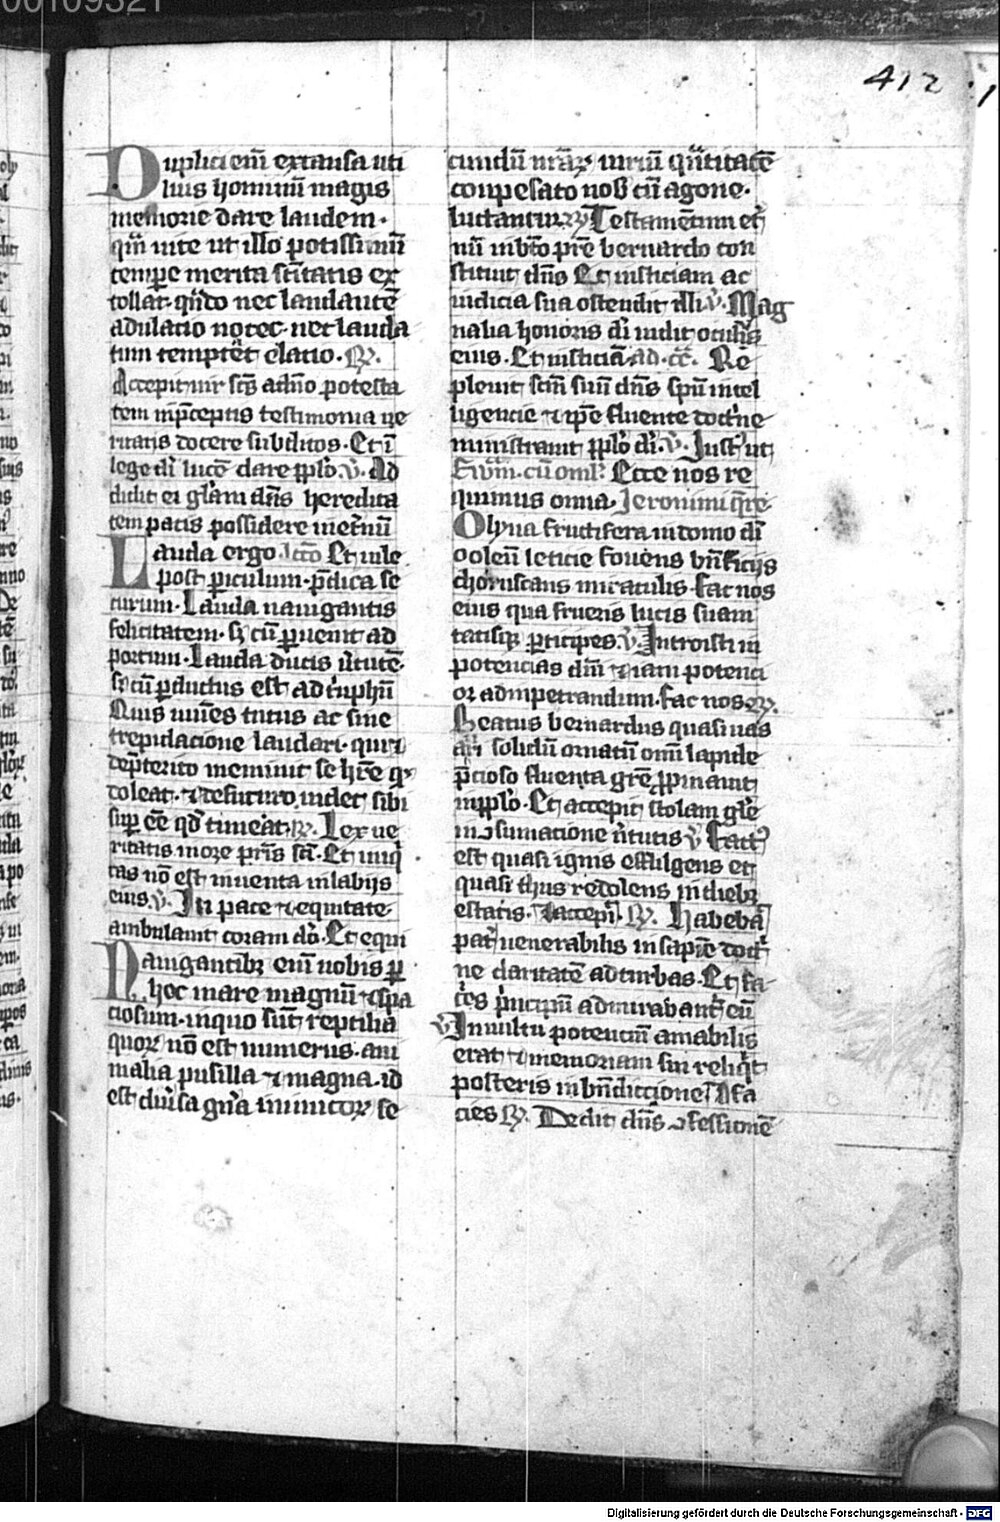 00109321
412
Duplici em̄ ex causa uti
lius hominū magis
memorie dare laudem·
qm̄ uite ut illo potissimū
tempe merita scītatis ex
tollat· qn̄do nec laudantē
adulatio notet· nec lauda
tum temptet elatio· R̷.
Accepit uir scūs a dnō potesta
tem in p̄ceptis testimonia ue
ritatis docere subditos· Et ī
lege dī lucē dare pplo v̓. Ad
didit ei glām dn̄s heredita
tem pacis possidere in et̓nū
Lauda ergo Et uile
post piculum· p̄dica se
curum· Lauda nauigantis
felicitatem· sȝ cū puenit ad
portum· Lauda ducis u̓tutē·
sȝ cū pductus est ad t̓umphū
Quis uiuēs tutus ac sine
trepidacione laudari· qui
de p̄terito meminit se hr̄e qȝ
doleat· ⁊ de futuro uidet sibi
sup eē qd̓ timeat· R̷. Lex ue
ritatis in ore pr̄is scī· Et iniq̓
tas nō est inuenta in labijs
eius· v̓. In pace ⁊ equitate·
ambulauit coram dō· Et equi
Nauigantibȝ em̄ uobis p
hoc mare magnū ⁊ spa
ciosum· in quo sūt reptilia
quoꝝ nō est numerus· ani
malia pusilla ⁊ magna· id
est diu̓sa gn̄a inimicoꝝ se
cundū nr̄aꝝ uiriū qn̄titatē
conpesato nob̄ cū agone·
luctantur R̷ Testamentum et̓
nū in bt̄o pr̄e bernardo con
stituit dn̄s Et iusticiam ac
iudicia sua ostendit illi v̓. Mag
nalia honoris dī uidit oculis
eius· Et iusticiā· ad· cc̄. Re
pleuit scm̄ suū dn̄s spū intel
ligencie ⁊ ip̄e fluente doct̓ne
ministrauit pplo dī· v̓. Iust̓ ut
Ewm̄· cū oml̓. Ecce nos re
quimus omnia· Jeronimi
Olyua fructifera in domo dī
o oleū leticie fouens bn̄ficijs
choruscans miraculis fac nos
eius qua frueris lucis suam
tatisqȝ pticipes· v̓. Introisti in
potencias dm̄ ⁊ iam potenci
or ad inpetrandum· fac nos R̷.
Beatus bernardus quasi uas
aūi solidū ornatū om̄i lapide
p̄cioso fluenta grē ppinauit
in pplo· Et accepit stolam glē
in ɔsumacione u̓tutis v̓ Fact̓
est quasi ignis effulgens et
quasi thus redolens in diebȝ
estatis· Et accepit R̷. Habebā
pat̓ uenerabilis in sapie doct̓
ne claritatē ad turbas· Et fa
cies p̓ncipū admirabant̓ eū
v̓ In uultu potentiū amabilis
erat ⁊ memoriam sui reliq̓t
posteris in bn̄dictione· Et fa
cies R̷. Dedit dn̄s ɔfessionē
Digitalisierung gefördert durch die Deutsche Forschungsgemeinschaft - DFG